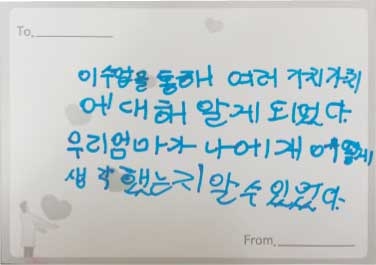 To.
이수업을 통해 여러 가치가치
에 대해 알게 되었다.
우리엄마가 나에게 어떻게
생각했는지 알 수 있었다.
From.